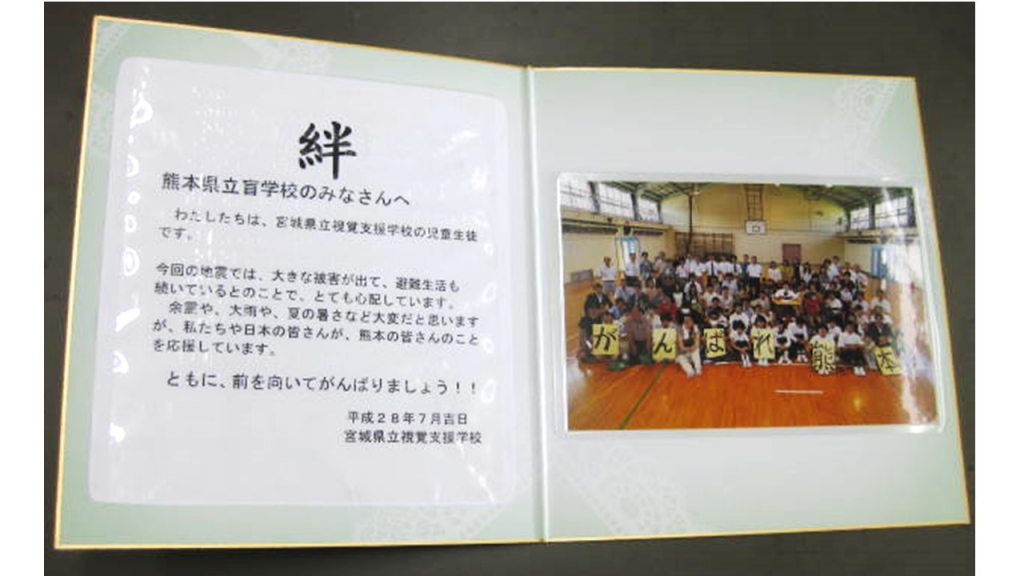 絆
熊本県立盲学校のみなさんへ
わたしたちは、宮城県立視覚支援学校の児童生徒
です。
今回の地震では、大きな被害が出て、避難生活も
続いているとのことで、とても心配しています。
余震や、大雨や、夏の暑さなど大変だと思います
が、私たちや日本の皆さんが、熊本の皆さんのこと
を応援しています。
ともに、前を向いてがんばりましょう！！
平成２８年７月吉日
宮城県立視覚支援学校
がんばれ熊本